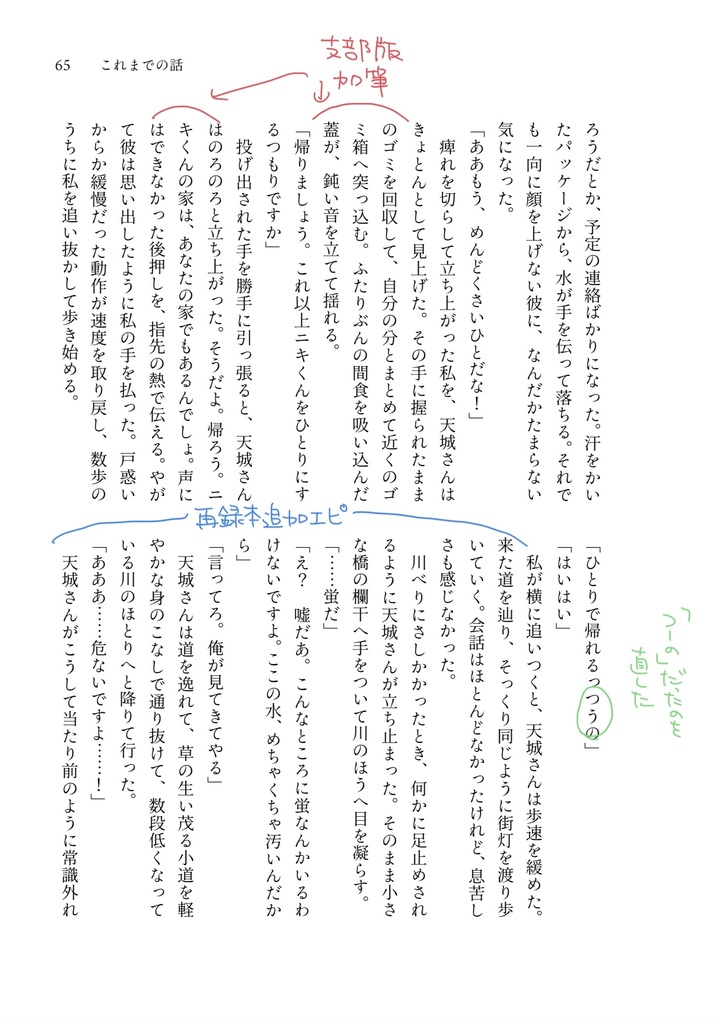 65　これまでの話
支部版
加筆
ろうだとか、予定の連絡ばかりになった。汗をかい
たパッケージから、水が手を伝って落ちる。それで
も一向に顔を上げない彼に、なんだかたまらない
気になった。
「ああもう、めんどくさいひとだな！」
　痺れを切らして立ち上がった私を、天城さんは
きょとんとして見上げた。その手に握られたまま
のゴミを回収して、自分の分とまとめて近くのゴ
ミ箱へ突っ込む。ふたりぶんの間食を吸い込んだ
蓋が、鈍い音を立てて揺れる。
「帰りましょう。これ以上ニキくんをひとりにす
るつもりですか」
　投げ出された手を勝手に引っ張ると、天城さん
はのろのろと立ち上がった。そうだよ。帰ろう。ニ
キくんの家は、あなたの家でもあるんでしょ。声に
はできなかった後押しを、指先の熱で伝える。やが
て彼は思い出したように私の手を払った。戸惑い
からか緩慢だった動作が速度を取り戻し、数歩の
うちに私を追い抜かして歩き始める。
「つーの」だったのを
直した
再録本追加エピ
「ひとりで帰れるっつうの」
「はいはい」
　私が横に追いつくと、天城さんは歩速を緩めた。
来た道を辿り、そっくり同じように街灯を渡り歩
いていく。会話はほとんどなかったけれど、息苦し
さも感じなかった。
　川べりにさしかかったとき、何かに足止めされ
るように天城さんが立ち止まった。そのまま小さ
な橋の欄干へ手をついて川のほうへ目を凝らす。
「……蛍だ」
「え？　嘘だあ。こんなところに蛍なんかいるわ
けないですよ。ここの水、めちゃくちゃ汚いんだか
ら」
「言ってろ。俺が見てきてやる」
　天城さんは道を逸れて、草の生い茂る小道を軽
やかな身のこなしで通り抜けて、数段低くなって
いる川のほとりへと降りて行った。
「あああ……危ないですよ……！」
　天城さんがこうして当たり前のように常識外れ